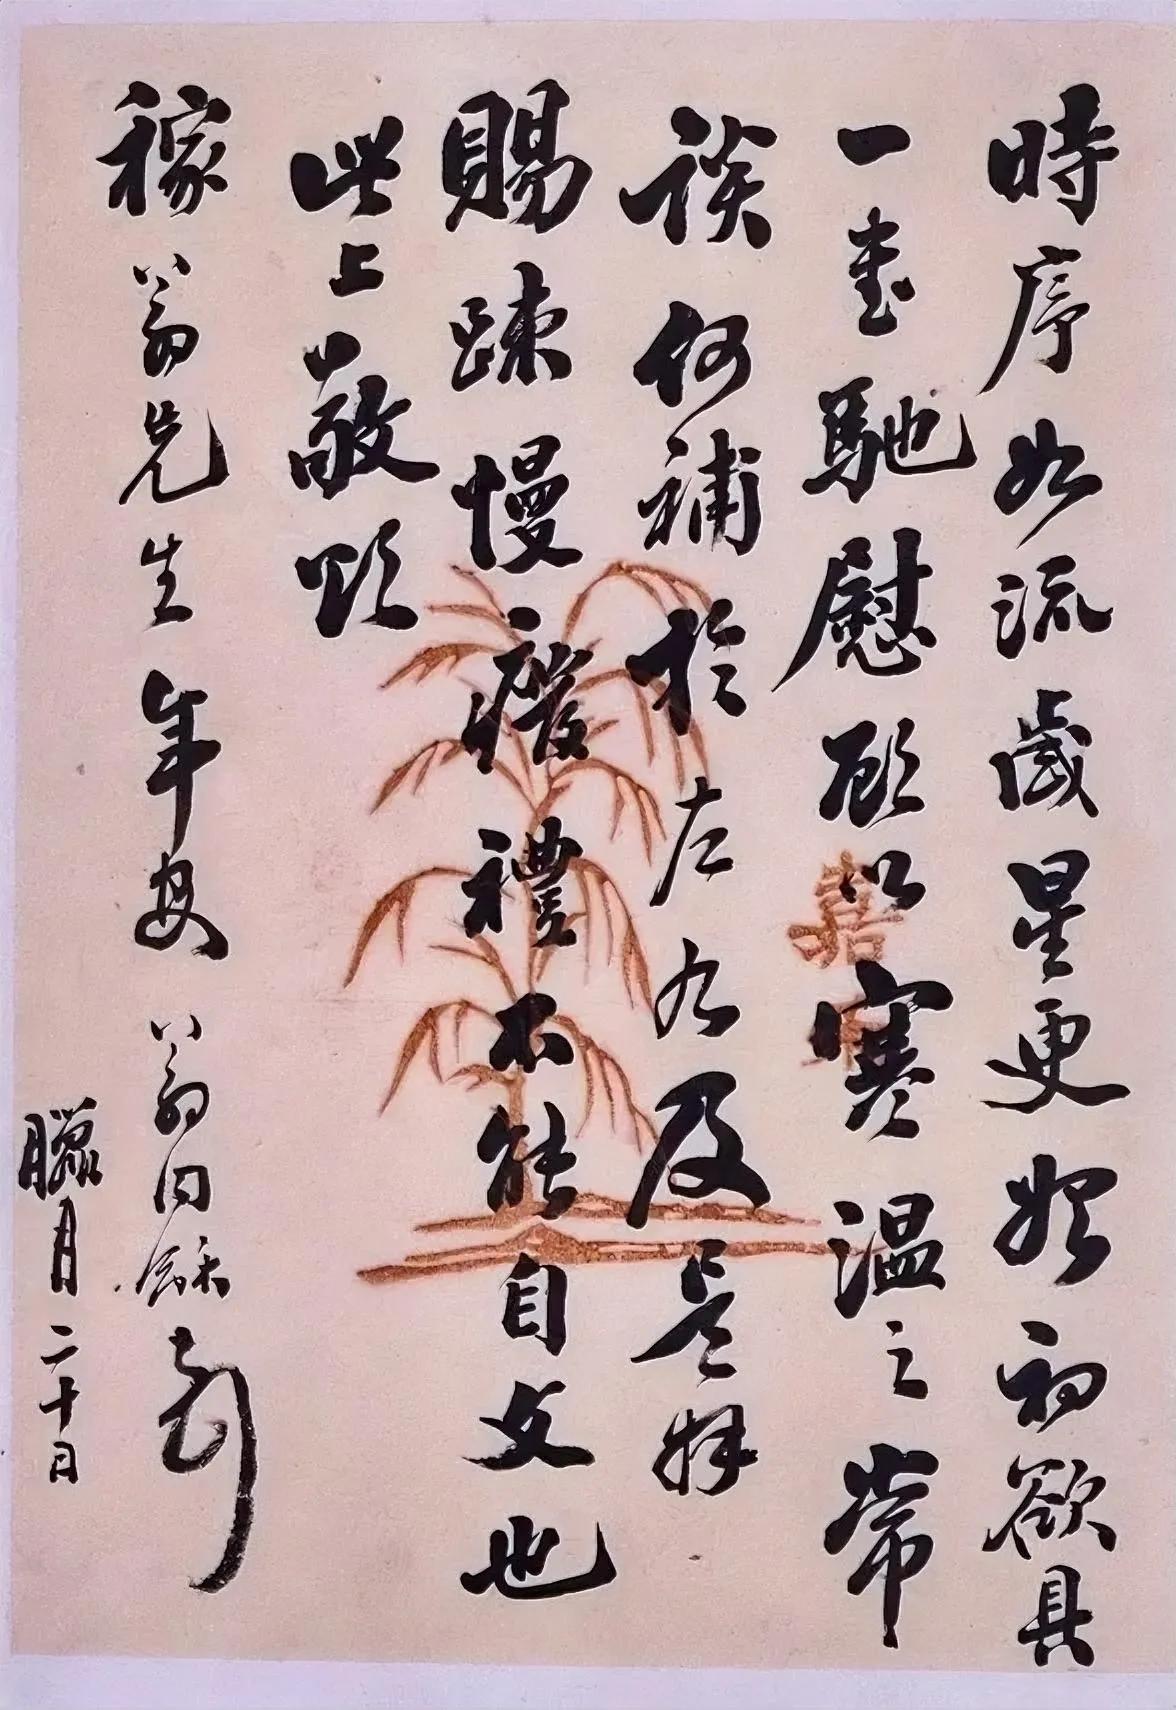 時序如流歲星更始初欲具
一書馳慰顧以寒溫之常
談何補於左右及長拜
賜踈慢廢禮不能自文也
此上敬頌
稼翁先生年安 翁同龢頓
臘月二十日